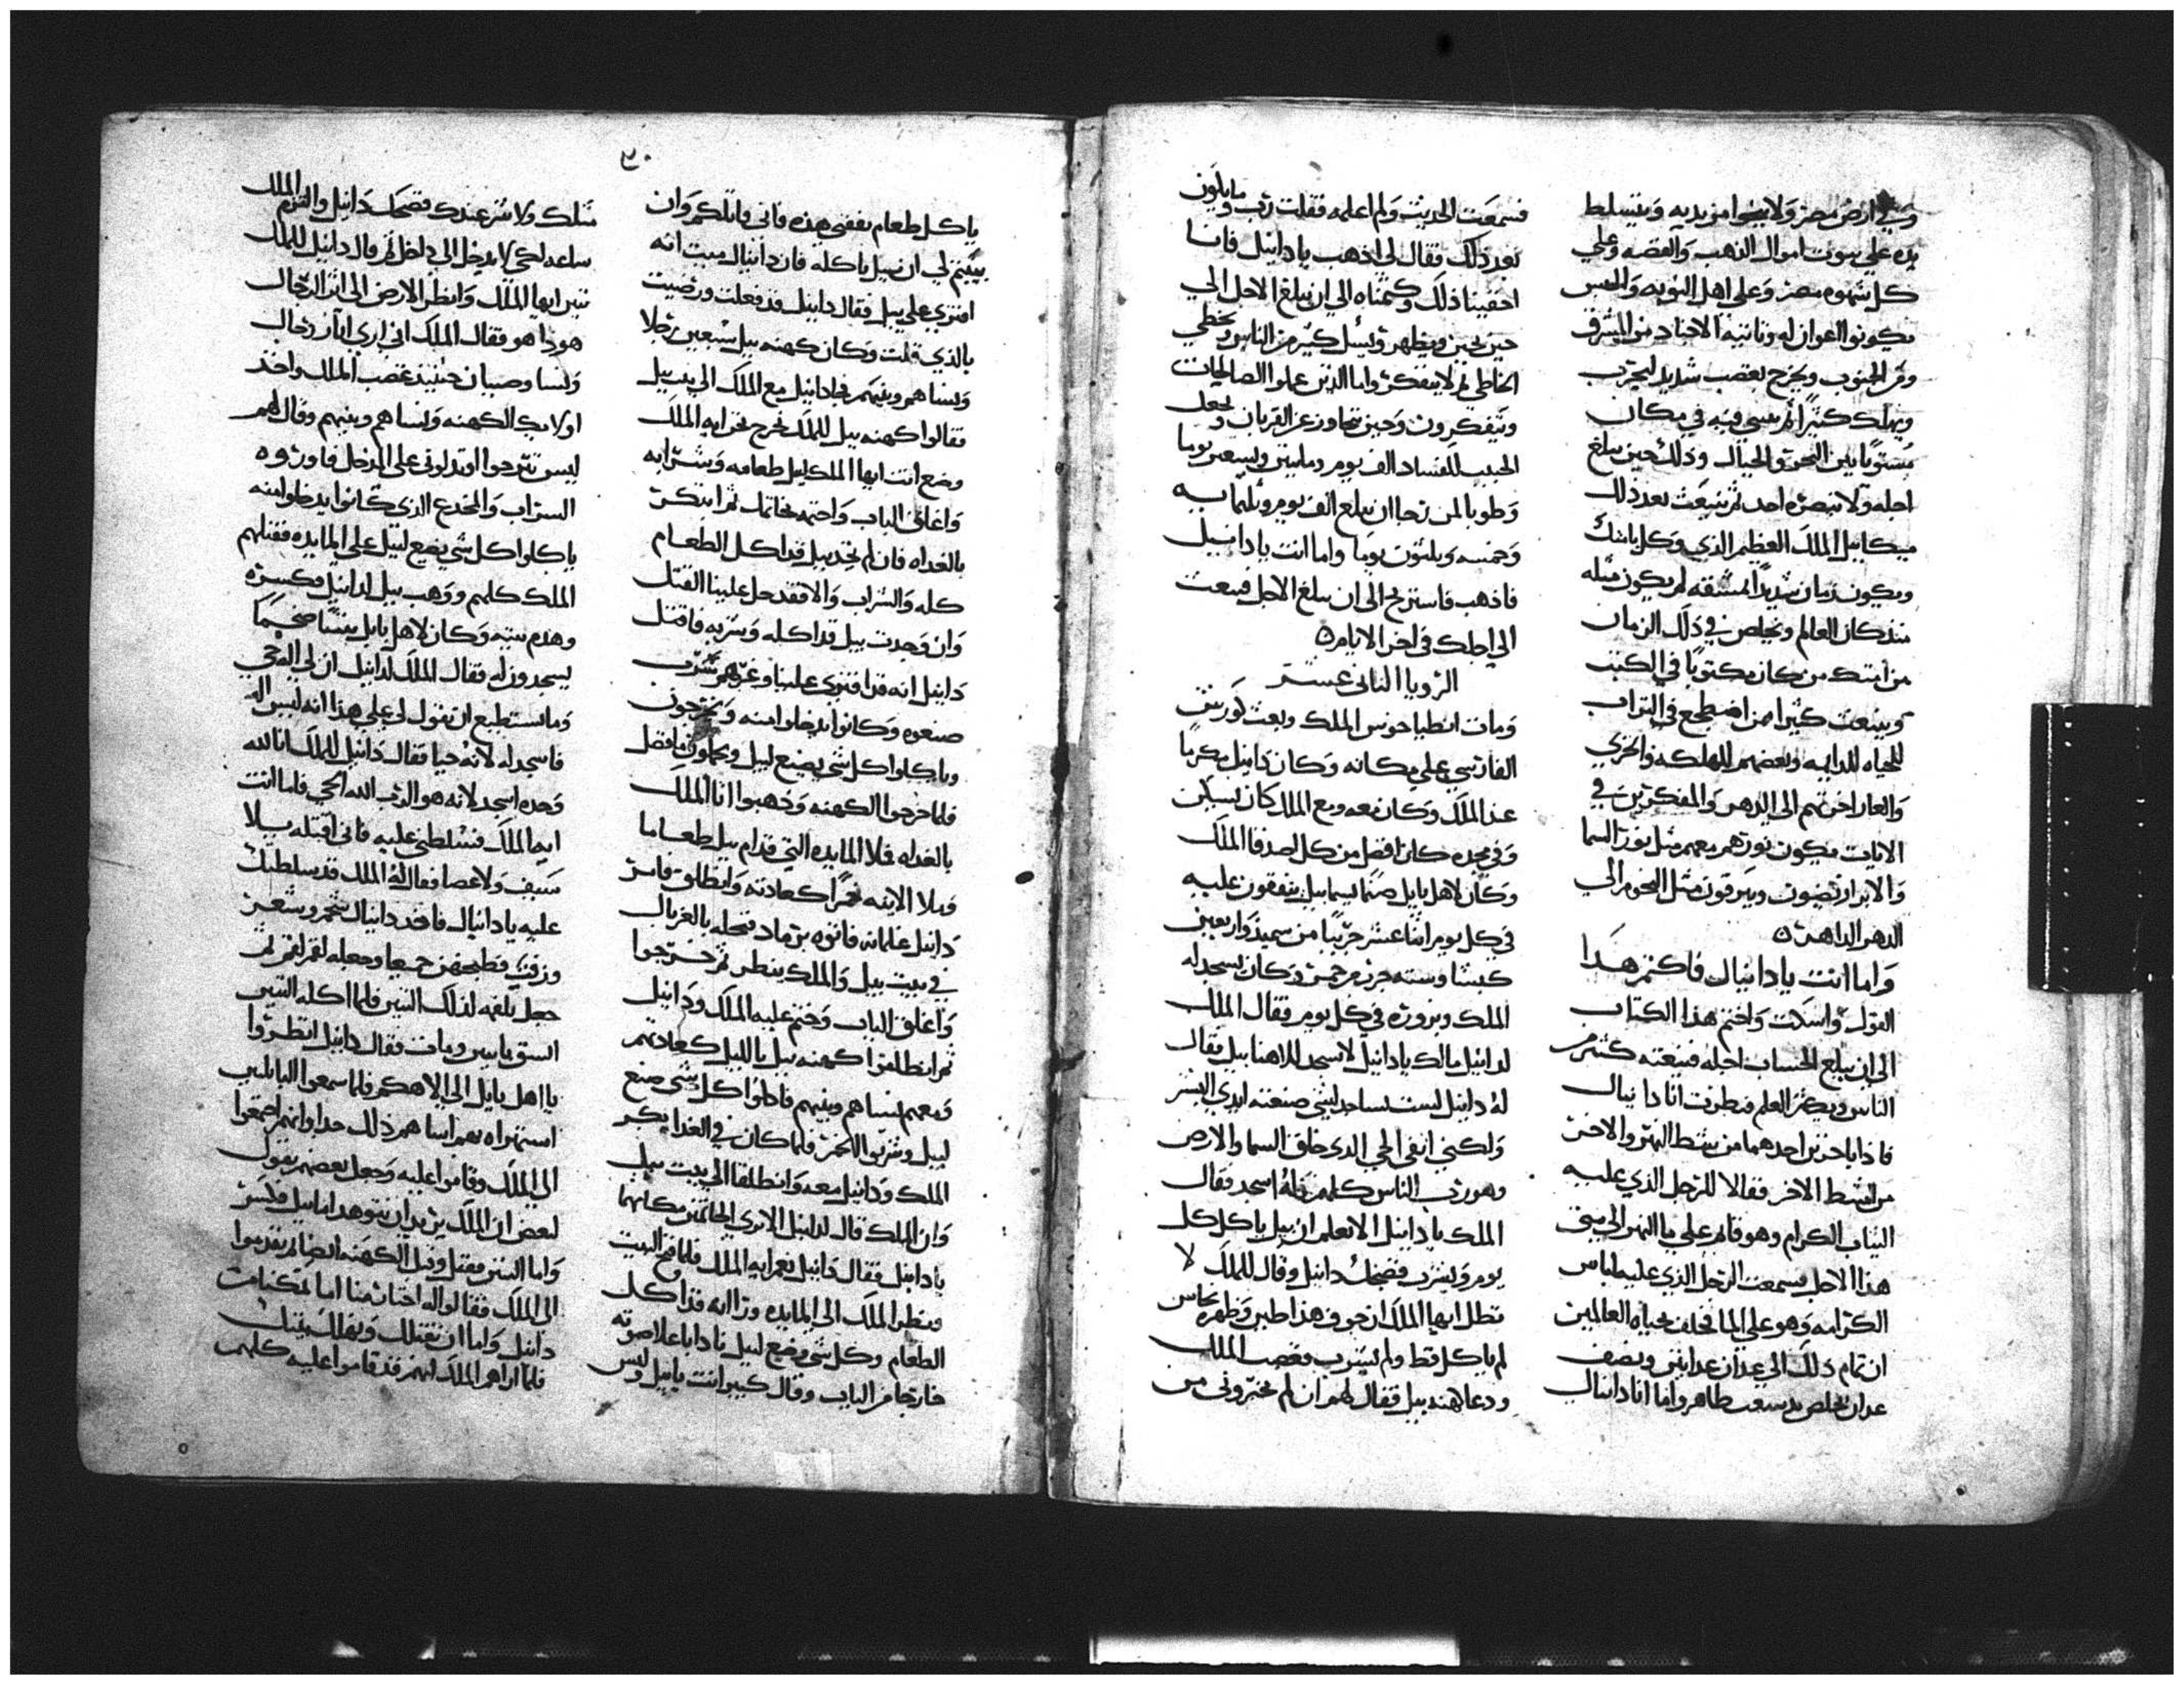 وفي ارض مصر ولا ينجوا من يديه ويتسلط
يده على بيوت اموال الذهب والفضه وعلي
كل شهوه مصر وعلى اهل النوبه والحبس
يكونوا اعوان له وتاتيه الاخبار من المشرق
ومن الجنوب ويخرج بغضب شديد ليخرب
ويهلك كثيرا ثم ينسى فيه في مكان
مستويا بين البحر والجبال وذلك حين يبلغ
اجله ولا ينصره احد ثم ينبعث بعد ذلك
ميكاييل الملك العظيم الذي وكل بامتك
ويكون زمان شديد المشقه لم يكون مثله
منذ كان العالم ويخلص في ذلك الزمان
من امتك من كان مكتوبا في الكتب
وينبعث كثيرا ممن اضطجع في التراب
للحياه الدايمه وبعضهم للهلكه والخزي
والعار اخرتهم الى الدهر والمفكرين في
الايات يكون نورهم معهم مثل نور السما
والابرار يضيون ويبرقون مثل النجوم الي
الدهر الداهر ه
واما انت يا دانيال فاكتم هذا
القول واسكت واختم هذا الكتاب
الى ان يبلغ الحساب اجله فيبعته كثير من
الناس ويكثر العلم فنظرت انا دانيال
فاذا باخرين احدهما من شط النهر والاخر
من الشط الاخر فقالا للرجل الذي عليه
الثياب الكرام وهو قايم على ما النهر الى متى
هذا الاجل فسمعت الرجل الذي عليه لباس
الكرامه وهو على الما فحلف بحياه العالمين
ان تمام ذلك الي عدان عدانين ونصف
عدان يخلص يد شعب طاهر واما انا دانيال
فسمعت الحديث ولم اعلمه فقلت رب وما يكون
بعد ذلك فقال لي اذهب يا دانيل فانا
اخفينا ذلك وكتمناه الى ان يبلغ الاجل الي
حين يحين ويظهر ويسل كثير من الناس ويخطي
الخاطي ثم لا يتفكر واما الذين عملوا الصالحات
ويتفكرون وحين يتجاوز عن القربان ويجعل
الحبيب للفساد الف يوم ومايتين وتسعين يوما
وطوبا لمن رجا ان يبلغ الف يوم وثلثمايه
وخمسه وثلثون يوما واما انت يا دانييل
فاذهب فاستريح الى ان يبلغ الاجل فيبعث
الي اجلك في اخر الايام ه
الرويا الثاني عشر
ومات اسطياجوس الملك وبعث كورش
الفارسي على مكانه وكان دانيل مكرما
عند الملك وكان معه ومع الملك كان يسكن
وفي مجده كان افضل من كل اصدقا الملك
وكان لاهل بابل صنما يسما بيل ينفقون عليه
في كل يوم اثنا عشر جريبا من سميد واربعين
كبشا وسته جرر خمر وكان يسجد له
الملك ويزوره في كل يوم فقال الملك
لدانيل مالك يا دانيل لا تسجد لالاهنا بيل فقال
له دانيل لست بساجد لشي صنعته ايدي البشر
ولكني اتقي الحي الذي خلق السما والارض
وهو رب الناس كلهم فله اسجد فقال
الملك يا دانيل الا تعلم ان بيل ياكل كل
يوم ويشرب فضحك دانيل وقال للملك لا
تطل ايها الملك ان جوف هذا طين وظهره نحاس
لم ياكل قط ولم يشرب فغضب الملك
ودعا كهنه بيل فقال لهم ان لم تخبروني من
٣٠
ياكل طعام نفقتي هذه فاني قاتلكم وان
بينتم لي ان بيل ياكله فان دانيال ميت انه
افترى على بيل فقال دانيل قد فعلت ورضيت
بالذي قلت وكان كهنه بيل سبعين رجلا
ونساهم وبنيهم فجا دانيل مع الملك الى بيت بيل
فقالوا كهنه بيل للملك نخرج نحن ايه الملك
وضع انت ايها الملك لبيل طعامه وشرابه
واغلق الباب واختمه بخاتمك ثم ابتكر
بالغداه فان لم تجد بيل قد اكل الطعام
كله والشراب والا فقد حل علينا القتل
وان وجدت بيل قد اكله وشربه فاقتل
دانيل انه قد افترى علينا وغرهم سرب
صنعوه وكانوا يدخلوا منه ويخرجون
وياكلوا كل شي يصنع لبيل ويحملون ما فضل
فلما خرجوا الكهنه وذهبوا اتا الملك
بالغداه فملا المايده التي قدام بيل طعاما
وملا الانيه خمرا كعادته وانطلق فامر
دانيل غلمانه فاتوه برماد فنخله بالغربال
في بيت بيل والملك ينظر ثم خرجوا
واغلق الباب وختم عليه الملك ودانيل
ثم انطلقوا كهنه بيل بالليل كعادتهم
ومعهم نساهم وبنيهم فاكلوا كل شي صنع
لبيل وشربوا الخمر فلما كان في الغد ابكر
الملك ودانيل معه وانطلقا الى بيت بيل
وان الملك قال لدانيل الا ترى الخاتمين مكانهما
يا دانيل فقال دانيل نعم ايه الملك فلما فتح البيت
ونظر الملك الى المايده وراا انه قد اكل
الطعام وكل شي وضع لبيل نادا باعلا صوته
خارجا من الباب وقال كبير انت يا بيل وليس
مثلك ولا شر عندك فضحك دانيل والتزم الملك
ساعه لكي لا يدخل الى داخل ثم قال دانيل للملك
تبين ايها الملك وانظر الارض الى اثر الرجال
هوذا هو فقال الملك اني ارى اثار رجال
ونسا وصبيان حينيذ غضب الملك واخذ
اولايك الكهنه ونساهم وبنيهم وقال لهم
ليس تبرحوا او تدلوني على المدخل فاوروه
السراب والمخدع الذي كانوا يدخلوا منه
ياكلوا كل شي يضع لبيل على المايده فقتلهم
الملك كلهم ووهب بيل لدانيل فكسره
وهدم بيته وكان لاهل بابل تنينا ضخما
يسجدون له فقال الملك لدانيل ان لي اله حي
وما تستطيع ان تقول لي على هذا انه ليس اله
فاسجد له لانه حيا فقال دانيل للملك انا لله
وحده اسجد لانه هو الرب الله الحي فاما انت
ايها الملك فسلطني عليه فاني اقتله بلا
سيف ولا عصا فقال له الملك قد سلطتك
عليه يا دانيال فاخذ دانيال شحم وشعر
وزفت فطبخهن جميعا وجعله لقم لقم ثم
جعل يلقمه لذلك التنين فلما اكله التنين
انشق باثنين ومات فقال دانيل انظروا
يا اهل بابل الى الاهكم فلما سمعوا البابليين
استهزاه بهم اساهم ذلك جدا وانهم اجتمعوا
الى الملك وقاموا عليه وجعل بعضهم يقول
لبعض ان الملك يريد ان يتهود اما بيل فكسر
واما التنين فقتل وقتل الكهنه ايضا ثم تقدموا
الى الملك فقالوا له اختار منا اما تمكنا من
دانيل واما ان نقتلك ونهلك بيتك
فلما راهم الملك انهم قد قاموا عليه كلهم